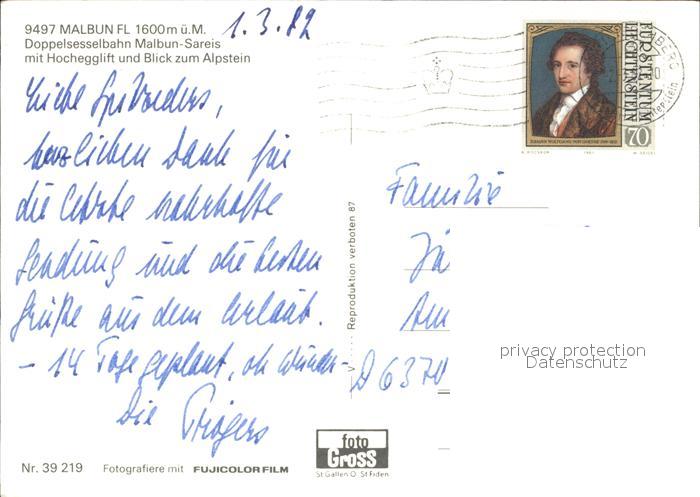 9497 MALBUN FL 1600m ü.M.
1.3.82
Doppelsesselbahn Malbun-Sareis
mit Hochegglift und Blick zum Alpstein
FÜRSTENTUM
LIECHTENSTEIN
70
JOHANN WOLFGANG VON GOETHE
Liebe
herzlichen Dank für
die
Sendung und die besten
Grüße aus dem Urlaub.
- 14 Tage geplant, oh Wunder -
Die
Reproduktion verboten 87
Familie
Am
D 6370
privacy protection
Datenschutz
foto
Gross
St Gallen O. St Fiden
Nr. 39 219 Fotografiere mit FUJICOLOR FILM